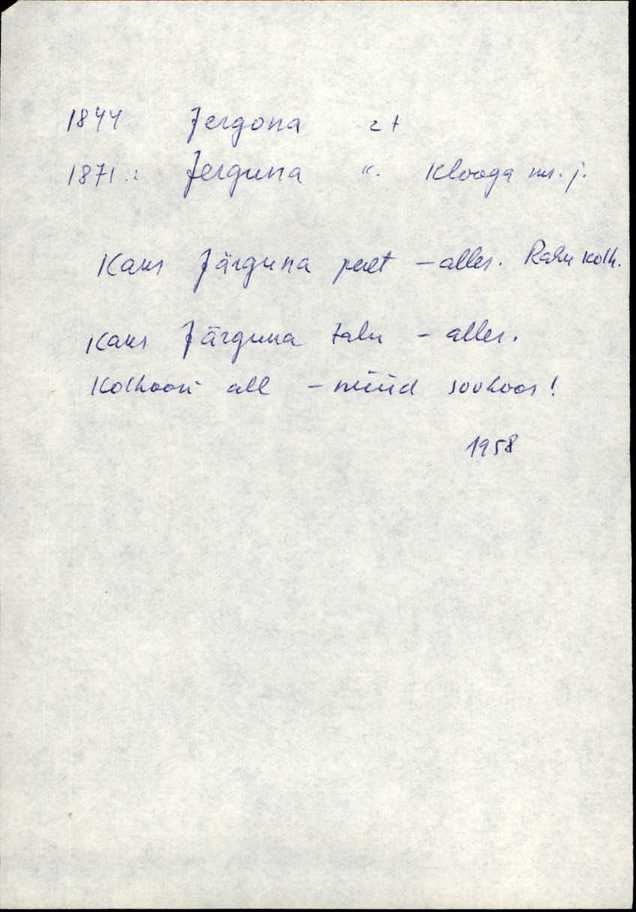 1844 Jergona 2t
1871.: Jerguna ". Klooga ms. j.
Kaks Järguna peret – alles. Rahu kolh.
Kaks Järguna talu – alles.
Kolhoosi all – nüüd sovhoos!
1958